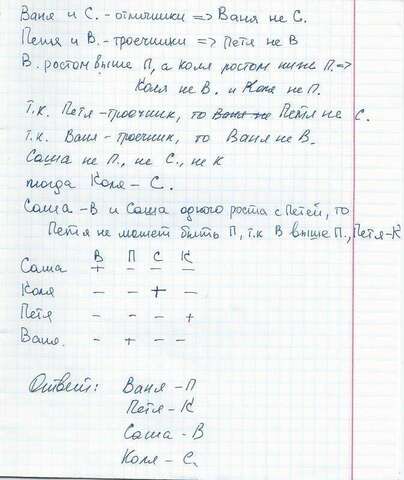 Ваня и С. - отличники => Ваня не С.
Петя и В. - троечники => Петя не В
В. ростом выше П, а Коля ростом ниже П. =>
Коля не В. и Коля не П.
Т.к. Петя - троечник, то Ваня не Петя не С.
т.к. Ваня - троечник, то Ваня не В.
Саша не П., не С., не К
тогда Коля - С.
Саша - В и Саша одного роста с Петей, то
Петя не может быть П, т.к В выше П., Петя - К
В П С К
Саша + - - -
Коля - - + -
Петя - - - +
Ваня. - + - -
Ответ: Ваня - П
Петя - К
Саша - В
Коля - С.